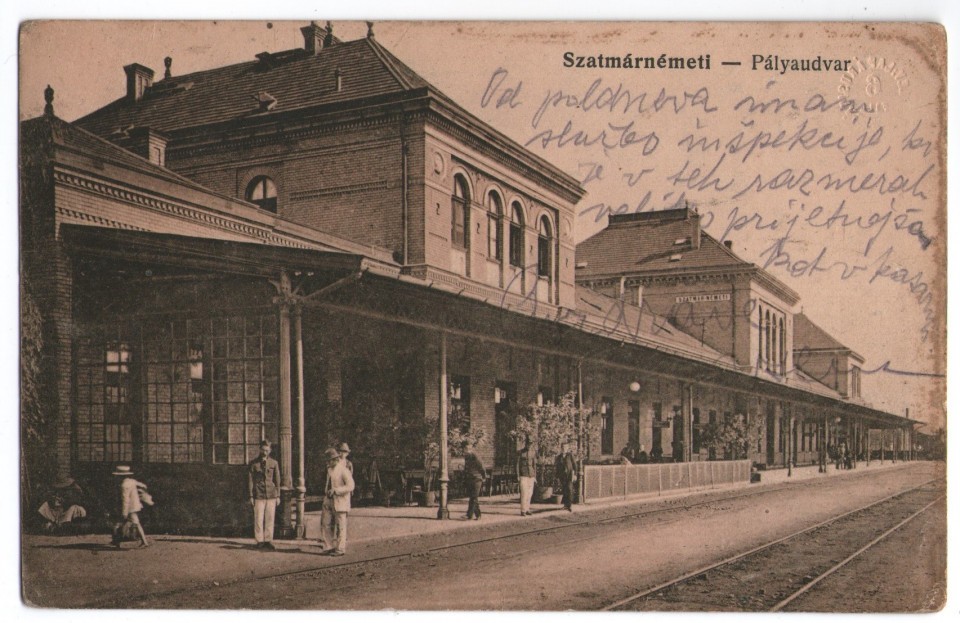 Szatmárnémeti — Pályaudvar
Od poldneva imam
službo inšpekcije, ki
je v teh razmerah
veliko prijetnejša
kot v kasarni
SZATMÁR-NÉMETI